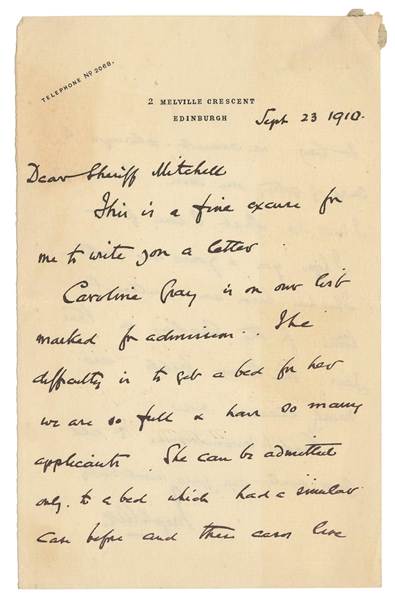 TELEPHONE Nº 2068.
2 MELVILLE CRESCENT
EDINBURGH
Sept 23 1910.
Dear Sheriff Mitchell
This is a fine excuse for
me to write you a letter.
Caroline Gray is on our list
marked for admission. The
difficulty is to get a bed for her
we are so full & have so many
applicants. She can be admitted
only to a bed which had a similar
case before and these cases live